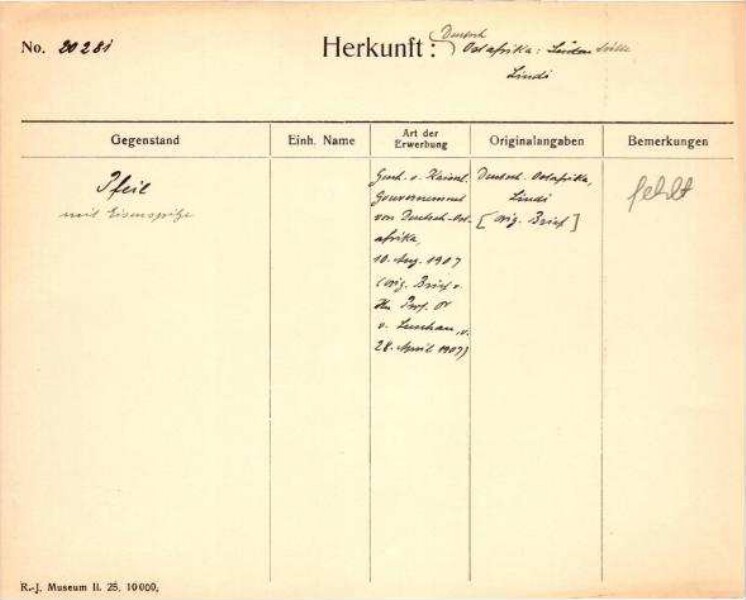 No. 20281
Herkunft: Deutsch
Ostafrika: Süden
Lindi
Gegenstand
Einh. Name
Art der
Erwerbung
Originalangaben
Bemerkungen
Pfeil
mit Eisenspitze
Gesch. v. Kaiserl.
Gouvernement
von Deutsch-Ost-
afrika,
10. Aug. 1907
(orig. Brief v.
Hn Prof. Dr
v. Luschan, v.
28. April 1907)
Deutsch. Ostafrika,
Lindi
[orig. Brief]
fehlt
R.-J. Museum II. 25. 10000,